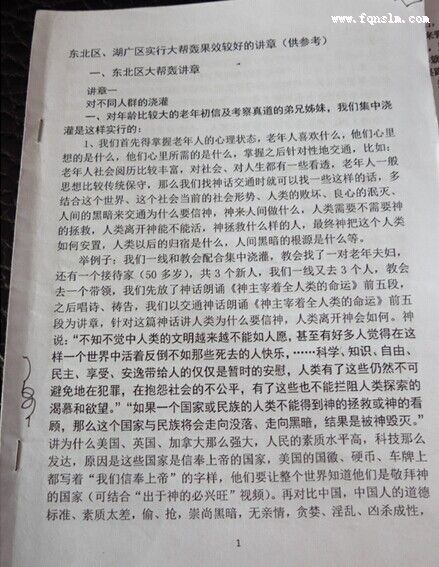 www.fqnslm.com
东北区、湖广区实行大帮轰果效较好的讲章（供参考）
一、东北区大帮轰讲章
讲章一
对不同人群的浇灌
一、对年龄比较大的老年初信及考察真道的弟兄姊妹，我们集中浇
灌是这样实行的：
1、我们首先得掌握老年人的心理状态，老年人喜欢什么，他们心里
想的是什么，他们心里所需的是什么，掌握之后针对性地交通，比如：
老年人社会阅历比较丰富，对社会、对人生都有一些看透，老年人一般
思想比较传统保守，那么我们找神话交通时就可以找一些这样的话，多
结合这个世界、这个社会当前的社会形势、人类的败坏、良心的泯灭、
人间的黑暗来交通为什么要信神，神来人间做什么，人类需要不需要神
的拯救，人类离开神能不能活，神拯救什么样的人，最终神把这个人类
如何安置，人类以后的归宿是什么，人间黑暗的根源是什么等。
举例子：我们一线和教会配合集中浇灌，教会找了一对老年夫妇，
还有一个接待家（50 多岁），共 3 个新人，我们一线又去 3 个人，教会
去一个带领，我们先放了神话朗诵《神主宰着全人类的命运》前五段，
之后唱诗、祷告，我们以交通神话朗诵《神主宰着全人类的命运》前五
段为讲章，针对这篇神话讲人类为什么要信神，人类离开神会如何。神
说：“不知不觉中人类的文明越来越不能如人愿，甚至有好多人觉得在这
样一个世界中活着反倒不如那些死去的人快乐，……科学、知识、自由、
民主、享受、安逸带给人的仅仅是暂时的安慰，人类有了这些仍然不可
避免地在犯罪，在抱怨社会的不公平，有了这些也不能拦阻人类探索的
渴慕和欲望。”“如果一个国家或民族的人类不能得到神的拯救或神的看
顾，那么这个国家与民族将会走向没落、走向黑暗，结果是被神毁灭。”
讲为什么美国、英国、加拿大那么强大，人民的素质水平高，科技那么
发达，原因是这些国家是信奉上帝的国家，美国的国徽、硬币、车牌上
都写着“我们信奉上帝”的字样，他们要让整个世界知道他们是敬拜神
的国家（可结合“出于神的必兴旺”视频）。再对比中国，中国人的道德
标准、素质太差，偷、抢，崇尚黑暗，无亲情，贪婪、淫乱、凶杀成性，
1